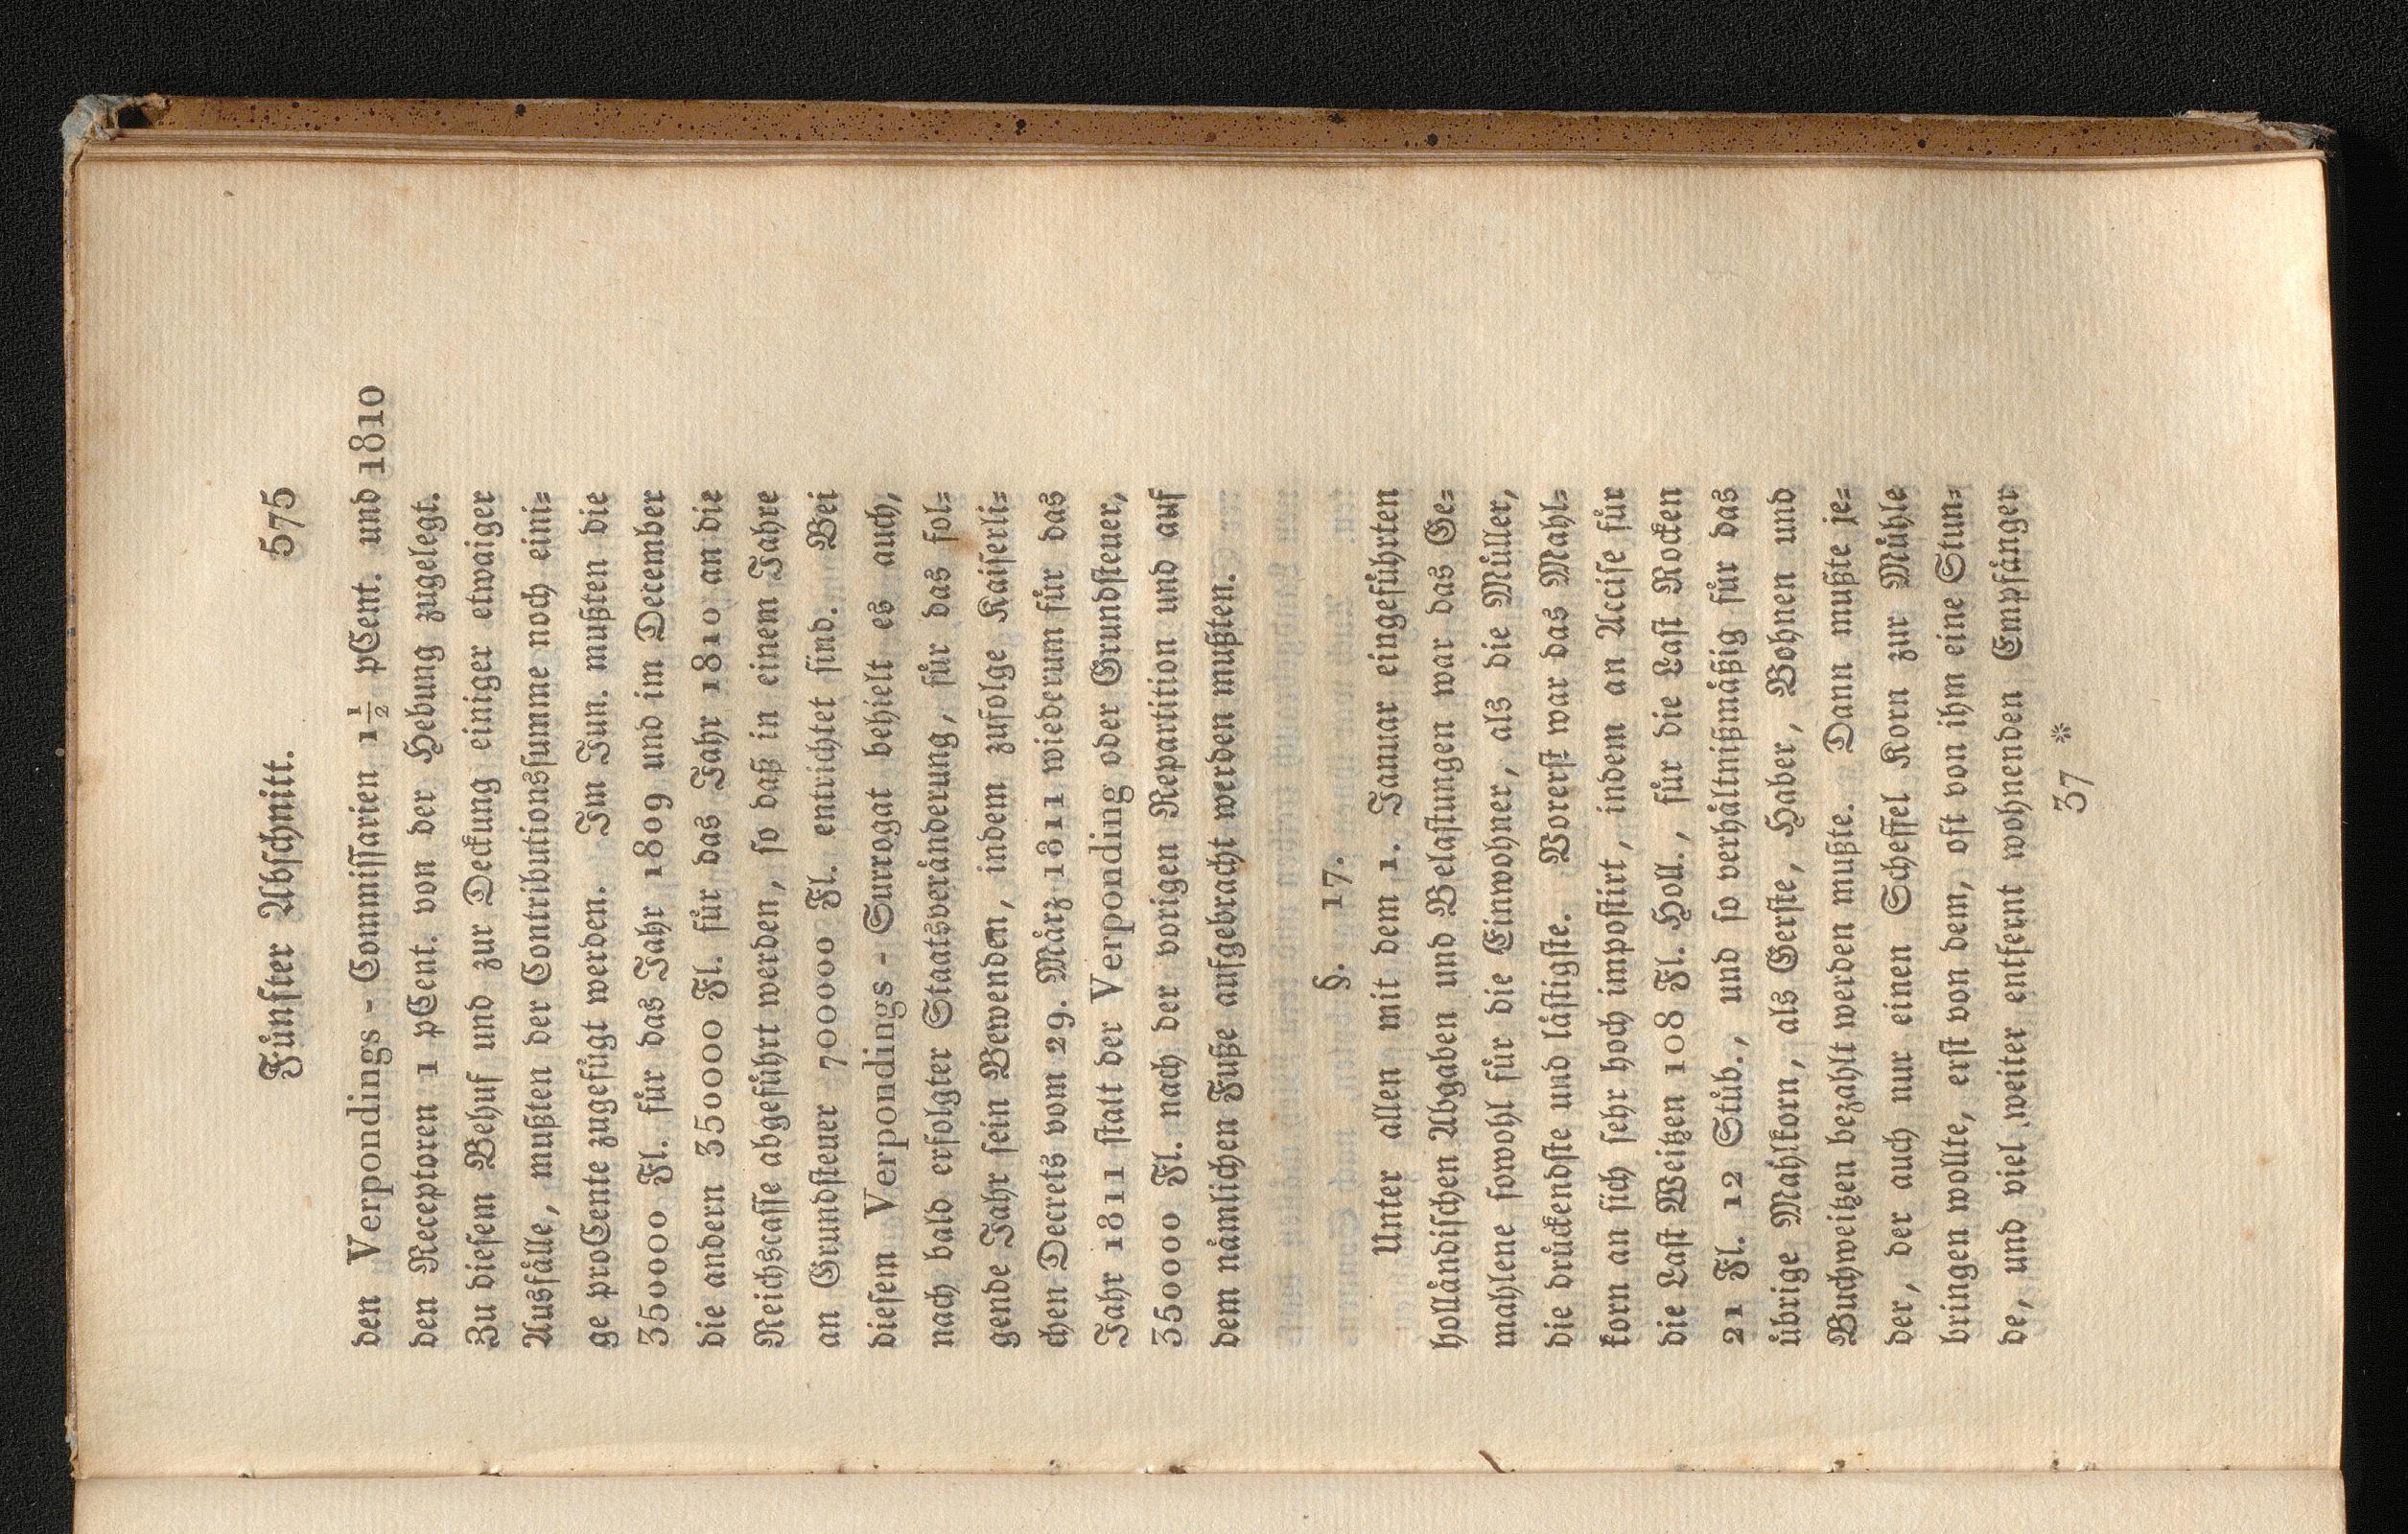 Fünfter Abschnitt. 575
den Verpondings - Commissarien 1½ pCent. und 1810
den Receptoren 1 pCent. von der Hebung zugelegt.
Zu diesem Behuf und zur Deckung einiger etwaiger
Ausfälle, mußten der Contributionssumme noch eini=
ge proCente zugefügt werden. Im Jun. mußten die
350000 Fl. für das Jahr 1809 und im December
die andern 350000 Fl. für das Jahr 1810 an die
Reichscasse abgeführt werden, so daß in einem Jahre
an Grundsteuer 700000 Fl. entrichtet sind. Bei
diesem Verpondings - Surrogat behielt es auch,
nach bald erfolgter Staatsveränderung, für das fol=
gende Jahr sein Bewenden, indem zufolge Kaiserli=
chen Decrets vom 29. März 1811 wiederum für das
Jahr 1811 statt der Verponding oder Grundsteuer,
350000 Fl. nach der vorigen Repartition und auf
dem nämlichen Fuße aufgebracht werden mußten.
§. 17.
Unter allen mit dem 1. Januar eingeführten
holländischen Abgaben und Belastungen war das Ge=
mahlene sowohl für die Einwohner, als die Müller,
die drückendste und lästigste. Vorerst war das Mahl=
korn an sich sehr hoch impostirt, indem an Accise für
die Last Weitzen 108 Fl. Holl., für die Last Rocken
21 Fl. 12 Stüb., und so verhältnißmäßig für das
übrige Mahlkorn, als Gerste, Haber, Bohnen und
Buchweitzen bezahlt werden mußte. Dann mußte je=
der, der auch nur einen Scheffel Korn zur Mühle
bringen wollte, erst von dem, oft von ihm eine Stun=
de, und viel weiter entfernt wohnenden Empfänger
37 *